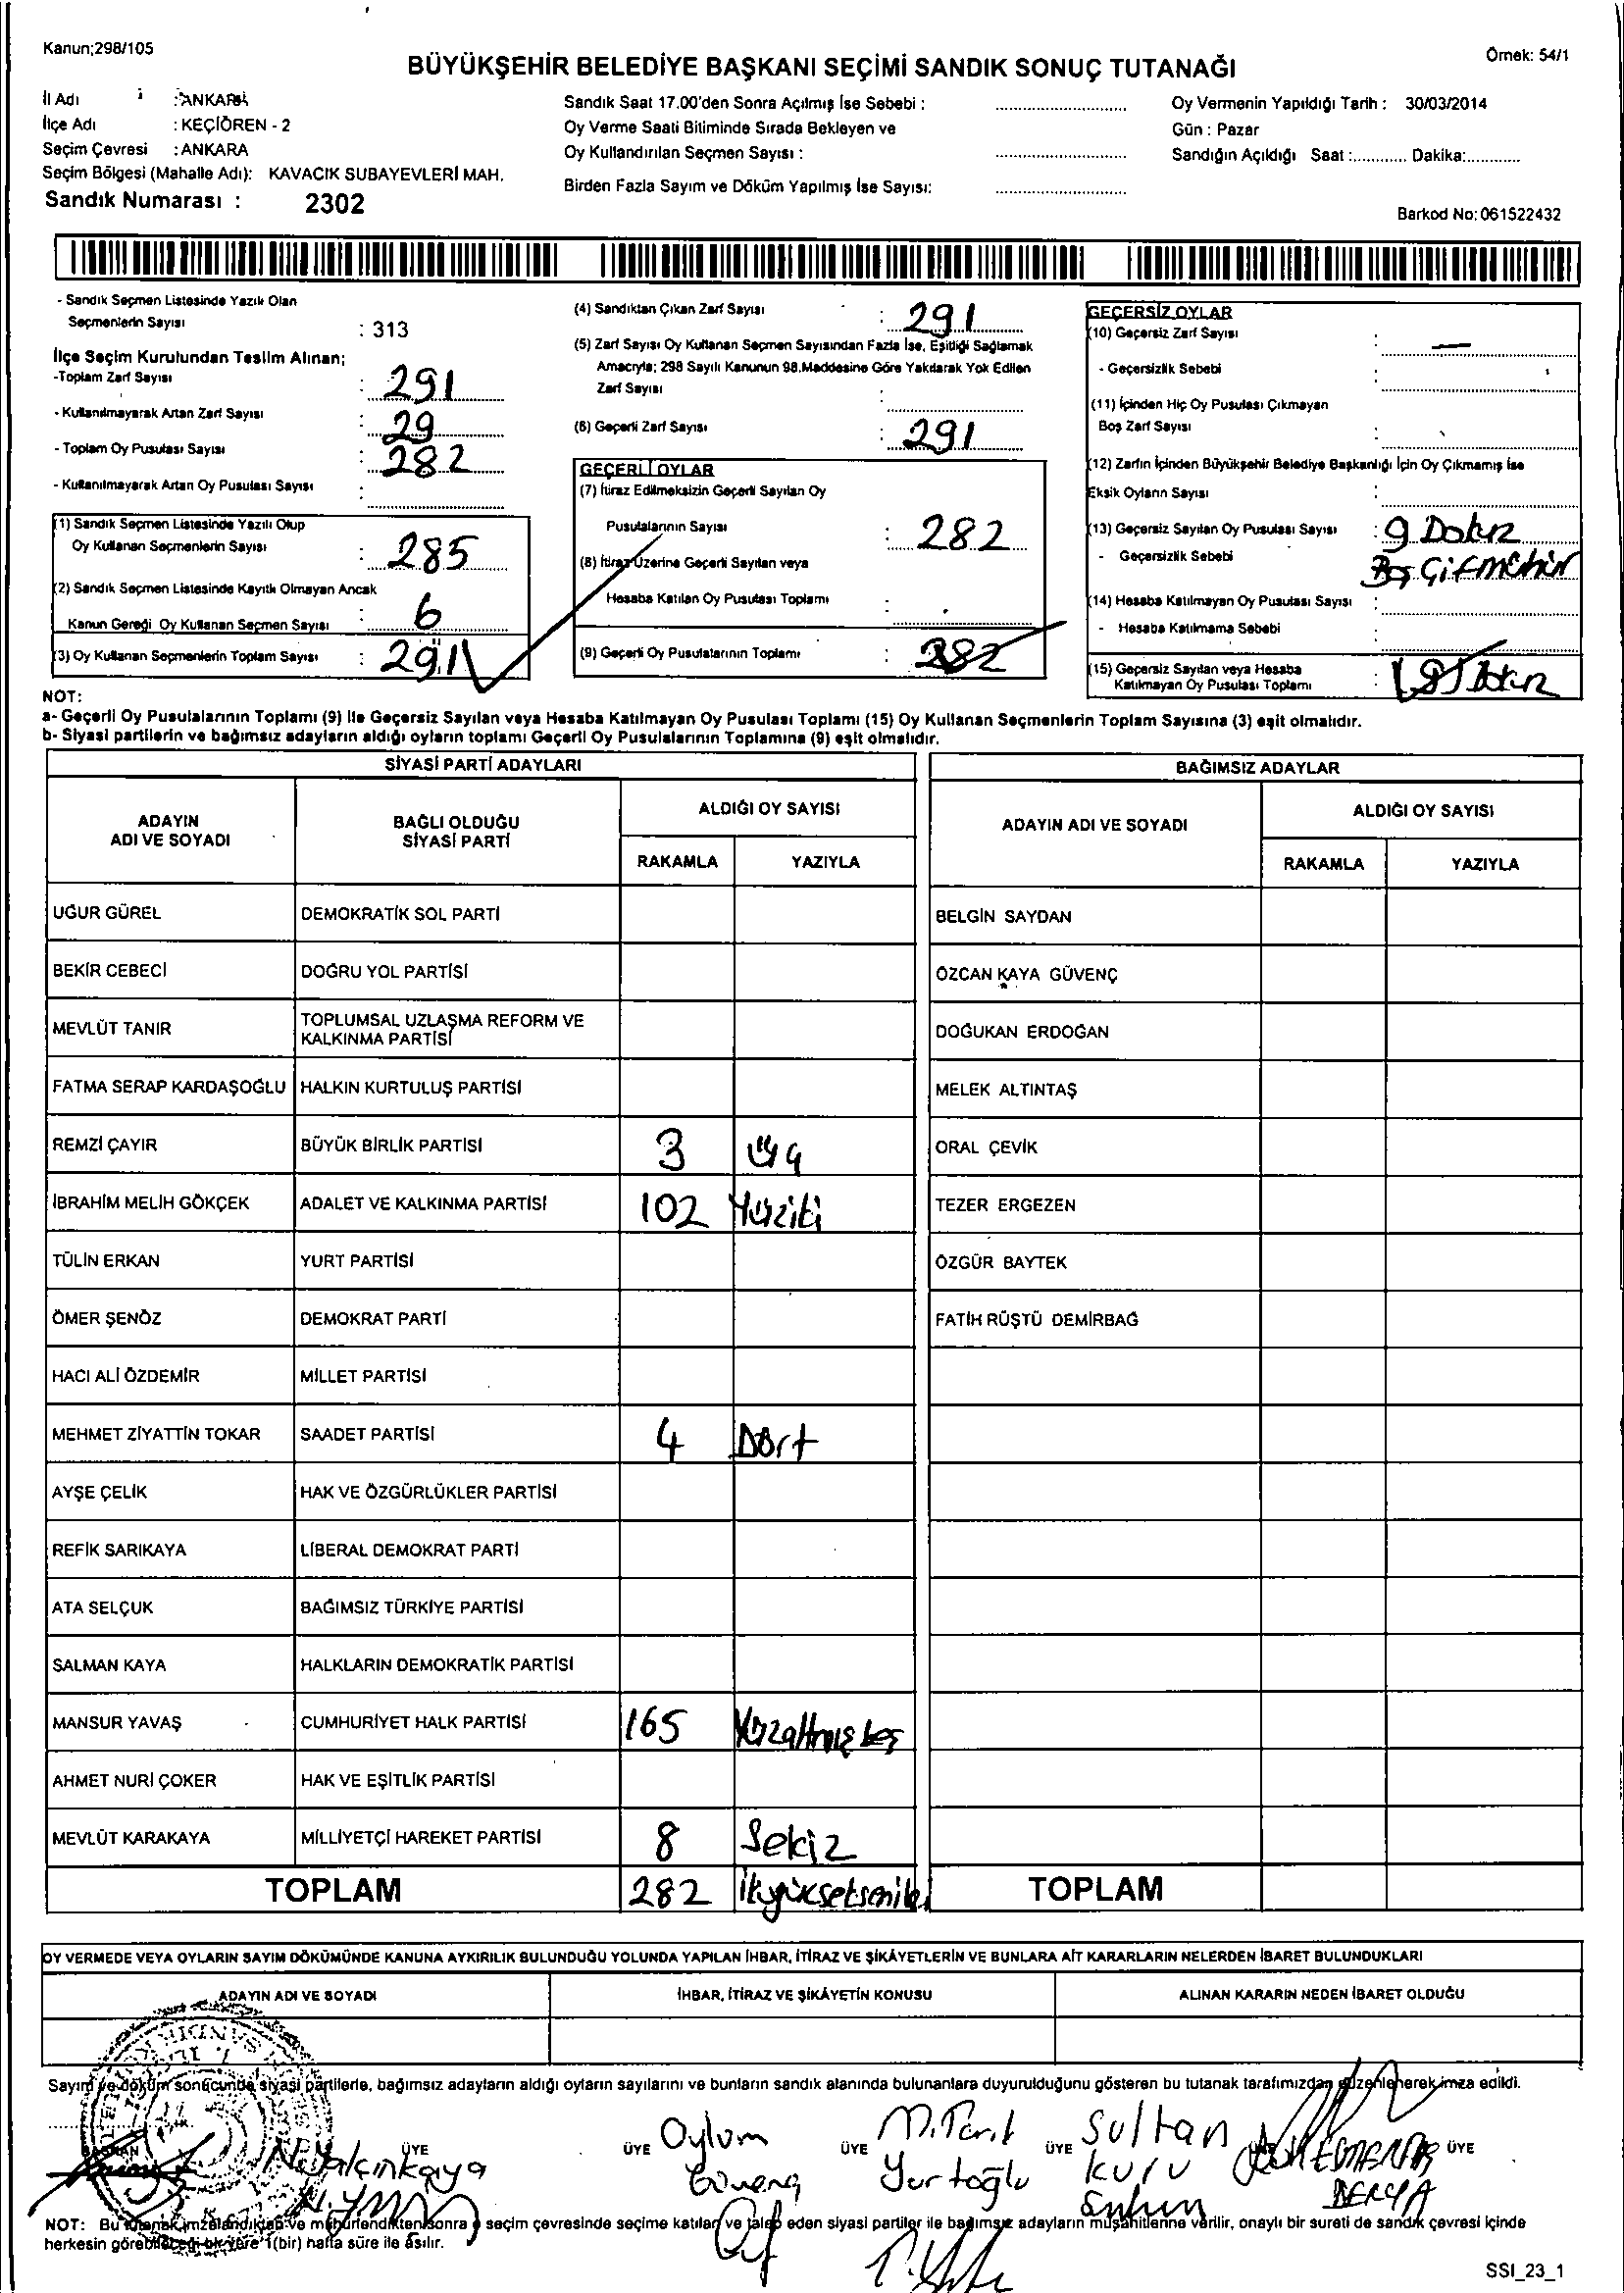 Kanun;298/105
Örnek: 54/1
BÜYÜKŞEHİR BELEDİYE BAŞKANI SEÇİMİ SANDIK SONUÇ TUTANAĞI
İl Adı : ANKARA
İlçe Adı : KEÇİÖREN - 2
Seçim Çevresi : ANKARA
Seçim Bölgesi (Mahalle Adı): KAVACIK SUBAYEVLERİ MAH.
Sandık Numarası : 2302
Sandık Saat 17.00'den Sonra Açılmış İse Sebebi :
Oy Verme Saati Bitiminde Sırada Bekleyen ve
Oy Kullandırılan Seçmen Sayısı :
Birden Fazla Sayım ve Döküm Yapılmış İse Sayısı:
Oy Vermenin Yapıldığı Tarih : 30/03/2014
Gün : Pazar
Sandığın Açıldığı Saat :............ Dakika:............
Barkod No: 061522432
- Sandık Seçmen Listesinde Yazılı Olan
Seçmenlerin Sayısı : 313
İlçe Seçim Kurulundan Teslim Alınan;
-Toplam Zarf Sayısı : 291
- Kullanılmayarak Artan Zarf Sayısı : 29
- Toplam Oy Pusulası Sayısı : 282
- Kullanılmayarak Artan Oy Pusulası Sayısı :
(1) Sandık Seçmen Listesinde Yazılı Olup
Oy Kullanan Seçmenlerin Sayısı : 285
(2) Sandık Seçmen Listesinde Kayıtlı Olmayan Ancak
Kanun Gereği Oy Kullanan Seçmen Sayısı : 6
(3) Oy Kullanan Seçmenlerin Toplam Sayısı : 291
(4) Sandıktan Çıkan Zarf Sayısı : 291
(5) Zarf Sayısı Oy Kullanan Seçmen Sayısından Fazla İse, Eşitliği Sağlamak
Amacıyla; 298 Sayılı Kanunun 98.Maddesine Göre Yakılarak Yok Edilen
Zarf Sayısı :
(6) Geçerli Zarf Sayısı : 291
GEÇERLİ OYLAR
(7) İtiraz Edilmeksizin Geçerli Sayılan Oy
Pusulalarının Sayısı : 282
(8) İtiraz Üzerine Geçerli Sayılan veya
Hesaba Katılan Oy Pusulası Toplamı :
(9) Geçerli Oy Pusulalarının Toplamı : 282
GEÇERSİZ OYLAR
(10) Geçersiz Zarf Sayısı : —
- Geçersizlik Sebebi :
(11) İçinden Hiç Oy Pusulası Çıkmayan
Boş Zarf Sayısı :
(12) Zarfın İçinden Büyükşehir Belediye Başkanlığı İçin Oy Çıkmamış İse
Eksik Oyların Sayısı :
(13) Geçersiz Sayılan Oy Pusulası Sayısı : 9 Dokuz
- Geçersizlik Sebebi Boş Çift mühür
(14) Hesaba Katılmayan Oy Pusulası Sayısı :
- Hesaba Katılmama Sebebi :
(15) Geçersiz Sayılan veya Hesaba
Katılmayan Oy Pusulası Toplamı : (9) Dokuz
NOT:
a- Geçerli Oy Pusulalarının Toplamı (9) İle Geçersiz Sayılan veya Hesaba Katılmayan Oy Pusulası Toplamı (15) Oy Kullanan Seçmenlerin Toplam Sayısına (3) eşit olmalıdır.
b- Siyasi partilerin ve bağımsız adayların aldığı oyların toplamı Geçerli Oy Pusulalarının Toplamına (9) eşit olmalıdır.
SİYASİ PARTİ ADAYLARI
ADAYIN ADI VE SOYADI BAĞLI OLDUĞU SİYASİ PARTİ ALDIĞI OY SAYISI
RAKAMLA YAZIYLA
UĞUR GÜREL DEMOKRATİK SOL PARTİ
BEKİR CEBECİ DOĞRU YOL PARTİSİ
MEVLÜT TANIR TOPLUMSAL UZLAŞMA REFORM VE KALKINMA PARTİSİ
FATMA SERAP KARDAŞOĞLU HALKIN KURTULUŞ PARTİSİ
REMZİ ÇAYIR BÜYÜK BİRLİK PARTİSİ 3 üç
İBRAHİM MELİH GÖKÇEK ADALET VE KALKINMA PARTİSİ 102 Yüziki
TÜLİN ERKAN YURT PARTİSİ
ÖMER ŞENÖZ DEMOKRAT PARTİ
HACI ALİ ÖZDEMİR MİLLET PARTİSİ
MEHMET ZİYATTİN TOKAR SAADET PARTİSİ 4 Dört
AYŞE ÇELİK HAK VE ÖZGÜRLÜKLER PARTİSİ
REFİK SARIKAYA LİBERAL DEMOKRAT PARTİ
ATA SELÇUK BAĞIMSIZ TÜRKİYE PARTİSİ
SALMAN KAYA HALKLARIN DEMOKRATİK PARTİSİ
MANSUR YAVAŞ CUMHURİYET HALK PARTİSİ 165 Yüzaltmışbeş
AHMET NURİ ÇOKER HAK VE EŞİTLİK PARTİSİ
MEVLÜT KARAKAYA MİLLİYETÇİ HAREKET PARTİSİ 8 Sekiz
TOPLAM 282 İkiyüzsekseniki
BAĞIMSIZ ADAYLAR
ADAYIN ADI VE SOYADI ALDIĞI OY SAYISI
RAKAMLA YAZIYLA
BELGİN SAYDAN
ÖZCAN KAYA GÜVENÇ
DOĞUKAN ERDOĞAN
MELEK ALTINTAŞ
ORAL ÇEVİK
TEZER ERGEZEN
ÖZGÜR BAYTEK
FATİH RÜŞTÜ DEMİRBAĞ
TOPLAM
OY VERMEDE VEYA OYLARIN SAYIM DÖKÜMÜNDE KANUNA AYKIRILIK BULUNDUĞU YOLUNDA YAPILAN İHBAR, İTİRAZ VE ŞİKÂYETLERİN VE BUNLARA AİT KARARLARIN NELERDEN İBARET BULUNDUKLARI
ADAYIN ADI VE SOYADI İHBAR, İTİRAZ VE ŞİKÂYETİN KONUSU ALINAN KARARIN NEDEN İBARET OLDUĞU
Sayım ve döküm sonucunda siyasi partilerle, bağımsız adayların aldığı oyların sayılarını ve bunların sandık alanında bulunanlara duyurulduğunu gösteren bu tutanak tarafımızdan düzenlenerek imza edildi.
BAŞKAN ÜYE ÜYE ÜYE ÜYE ÜYE
N.Yalçınkaya
Oylum Güvenç
M.Tarık Yurtoğlu
Sultan Kuru
DERYA
NOT: Bu tutanak imzalandıktan ve mühürlendikten sonra o seçim çevresinde seçime katılan ve talep eden siyasi partiler ile bağımsız adayların müşahitlerine verilir, onaylı bir sureti de sandık çevresi içinde
herkesin görebileceği bir yere 1(bir) hafta süre ile asılır.
SSI_23_1